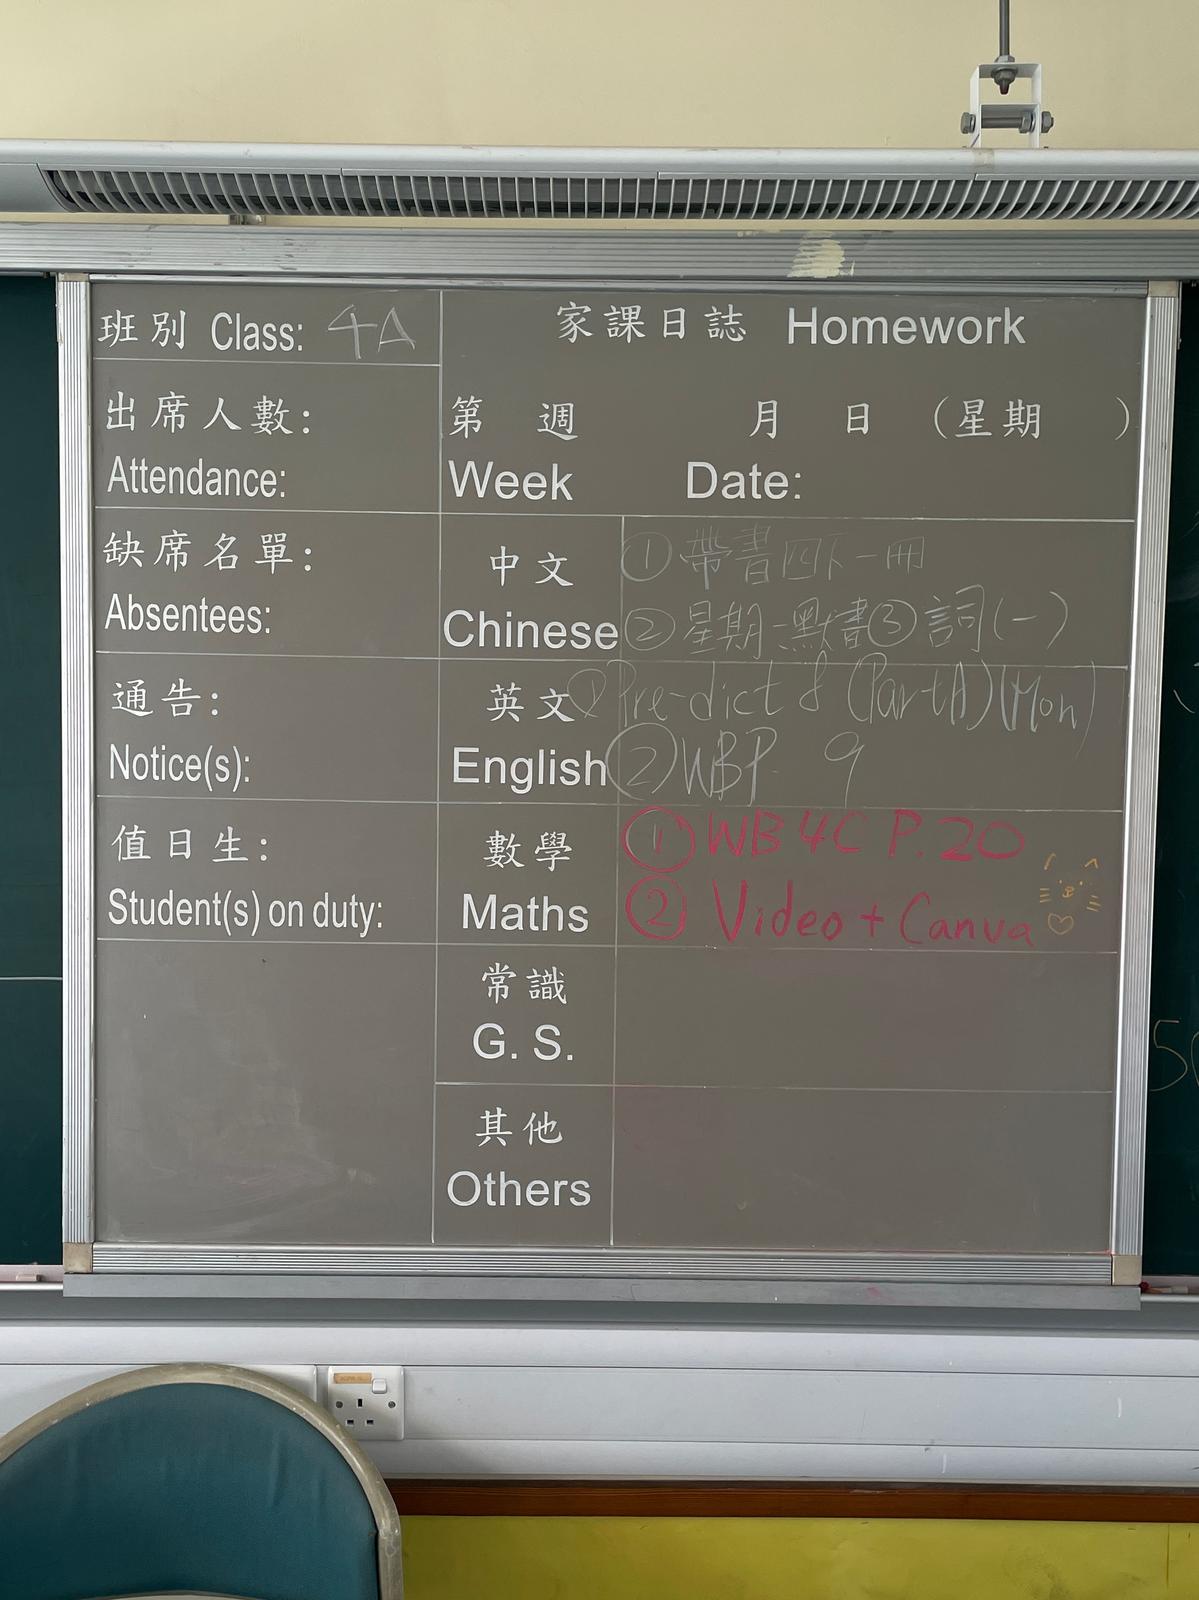 班別 Class: 4A
家課日誌 Homework
出席人數:
Attendance:
第 週 月 日 (星期 )
Week Date:
缺席名單:
Absentees:
中文
Chinese
①帶書四下一冊
②星期一默書③詞(一)
通告:
Notice(s):
英文
English
①Pre-dict 8 (Part A)(Mon)
②WB P. 9
值日生:
Student(s) on duty:
數學
Maths
①WB 4C P.20
②Video + Canva
常識
G. S.
其他
Others